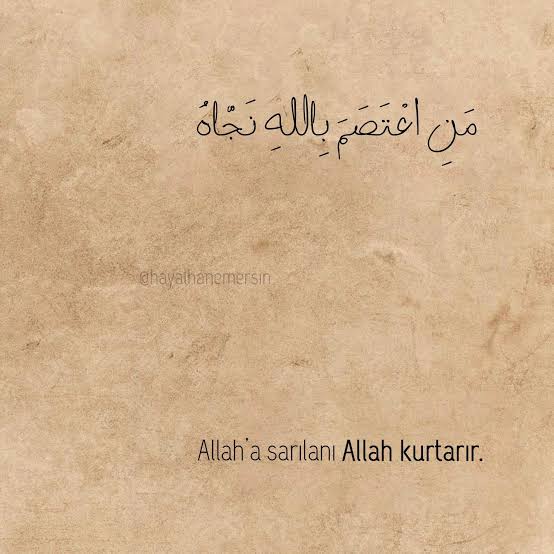 مَنِ اعْتَصَمَ بِاللهِ نَجّاهُ
@hayalhanemersin
Allah'a sarılanı Allah kurtarır.